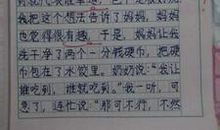 我把这个想法告诉了妈妈，妈妈
也觉得很有趣。于是，妈妈让我
洗干净了两个一分钱硬币，把硬
币包在了水饺里。奶奶说：“我让
谁吃到，谁就吃到。”我一听，可
急了，连忙说：“那可不行，不然